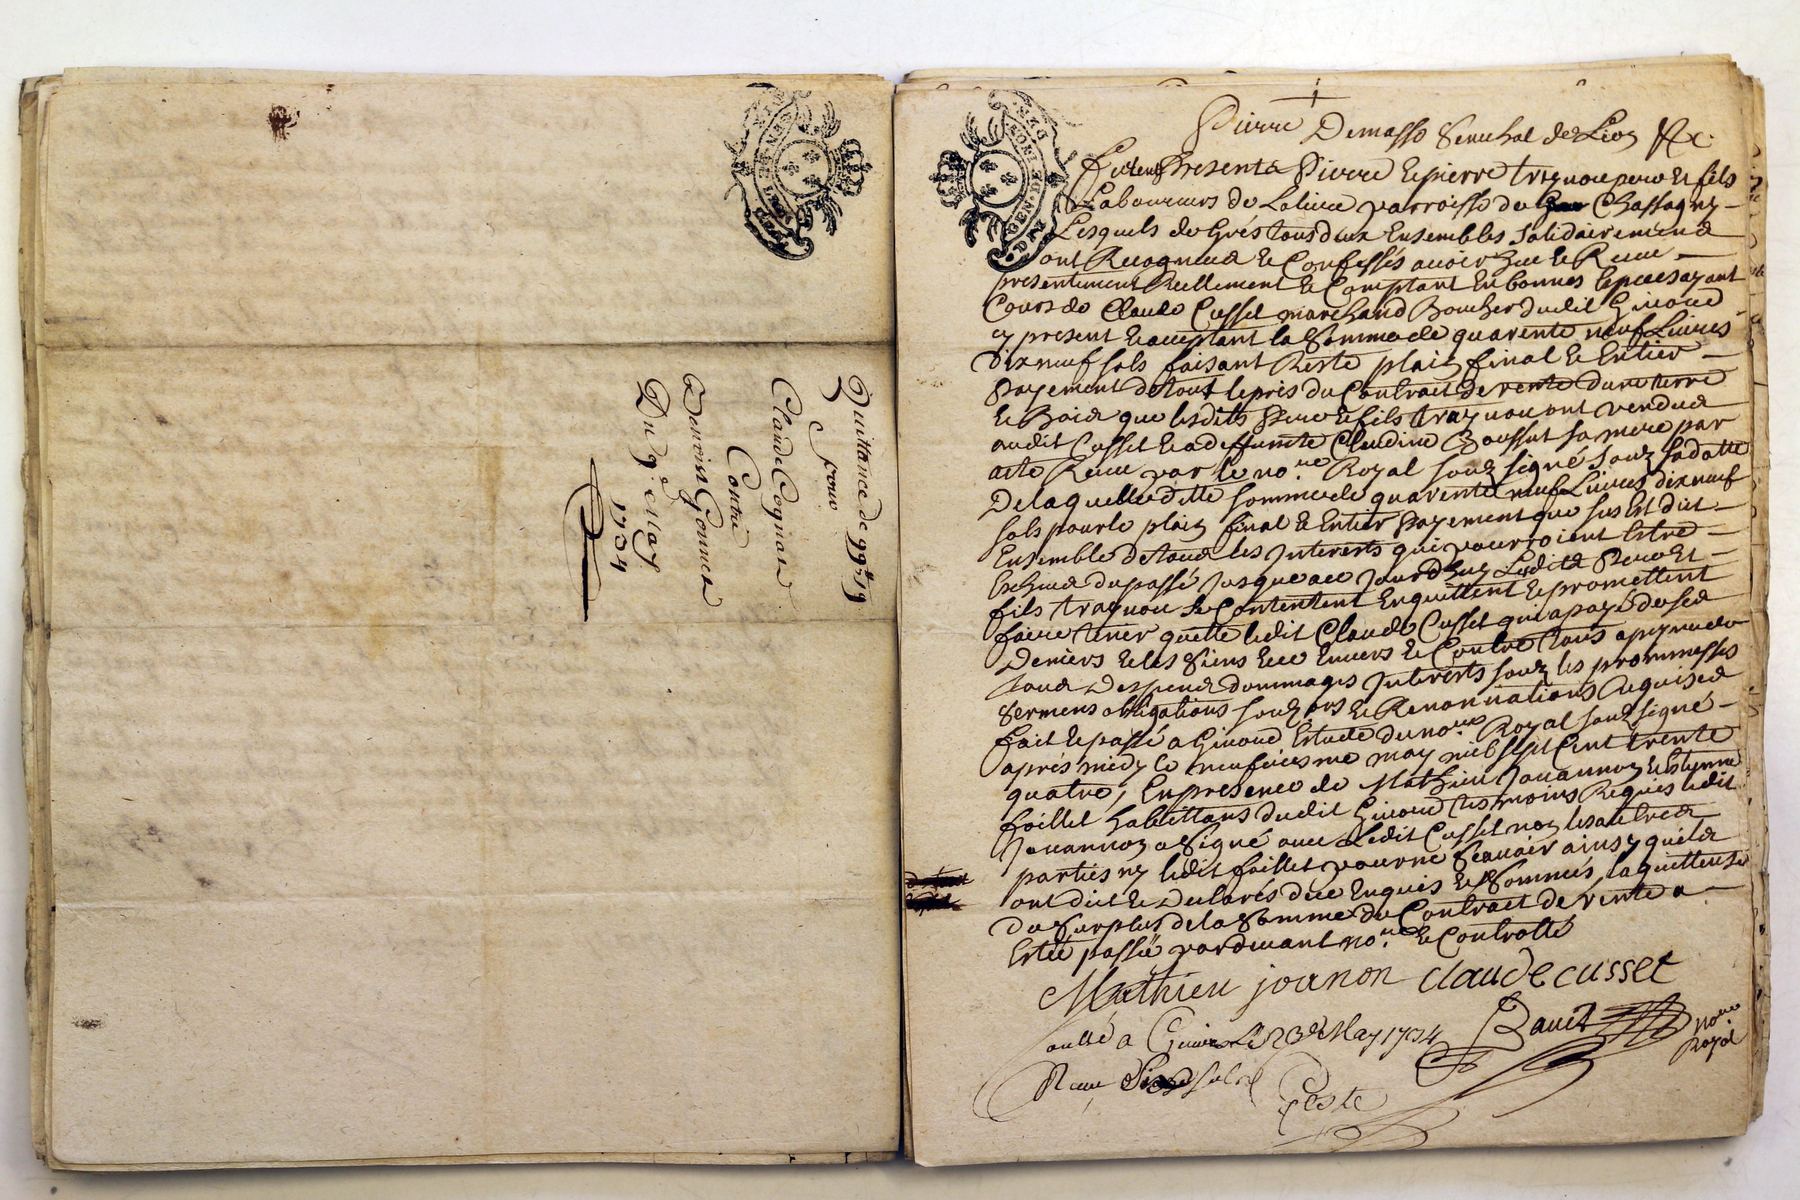 Quittance de 99# 19
pour
Claude Cognard
Contre
Benoist Gonnet
Du 9e May
1734
GEN. DE LION
DEN. DE LION
Pierre Demasso Senechal de Lion &c.
Furent Presents Pierre et pierre traynou pere et fils
Laboureurs de parroisse de Chassagny
Lesquels de Grés tous deux Ensembles solidairement
ont Recognud et Confessés avoir heu et Receu
presentement Reellement et Comptant En bonnes Especes ayant
Cours de Claude Cusset marchand Boucher dudit Givord
cy present et acceptant la Somme de quarente neuf Livres
dix neuf sols faisant Reste plain final et Entier
Payement de tout le pris du Contrait de vente dune terre
et Bois que lesdits Pere et fils traynou ont vendud
audit Cusset et a deffunte Claudine Bousset sa mere par
acte Receu par le no.re Royal souz signé souz sa datte
De laquelle ditte somme de quarente neuf Livres dix neuf
sols pour le plain final et Entier Payement que sus Est dit
Ensemble de toud les Interests qui pourroient Estre
Escheud du passé Jusque a ce Jourdhuy Lesdits Pere et
fils traynou se Contentent En quittent et promettent
faire tenir quitte ledit Claude Cusset qui a payé de sed
Deniers et les siens Envers et Contre tous a peyne de
toud Despend dommages Interests souz les prommesses
Sermens obligations souz ors et Renonciations Requised
fait et passé a Givord Estude du no.re Royal souz signé
apres midy le neufvieme may mil sept Cent trente
quatre, En presence de Mathieu Jouannon et Estienne
foillet habittans dudit Givord tesmoins Requis ledit
Jouannon a Signé avec Ledit Cusset non les autred
parties ny ledit foillet pour ne Scavoir ainsy quild
ont dit et Declarés de ce Enquis et Sommés, la quittance
du Surplus de la Somme du Contrait de vente a
Estée passée pardevant no.re et Controllé
Mathieu jouanon claude cusset
no.re Royal
a Givord Le 23e May 1734
Receu